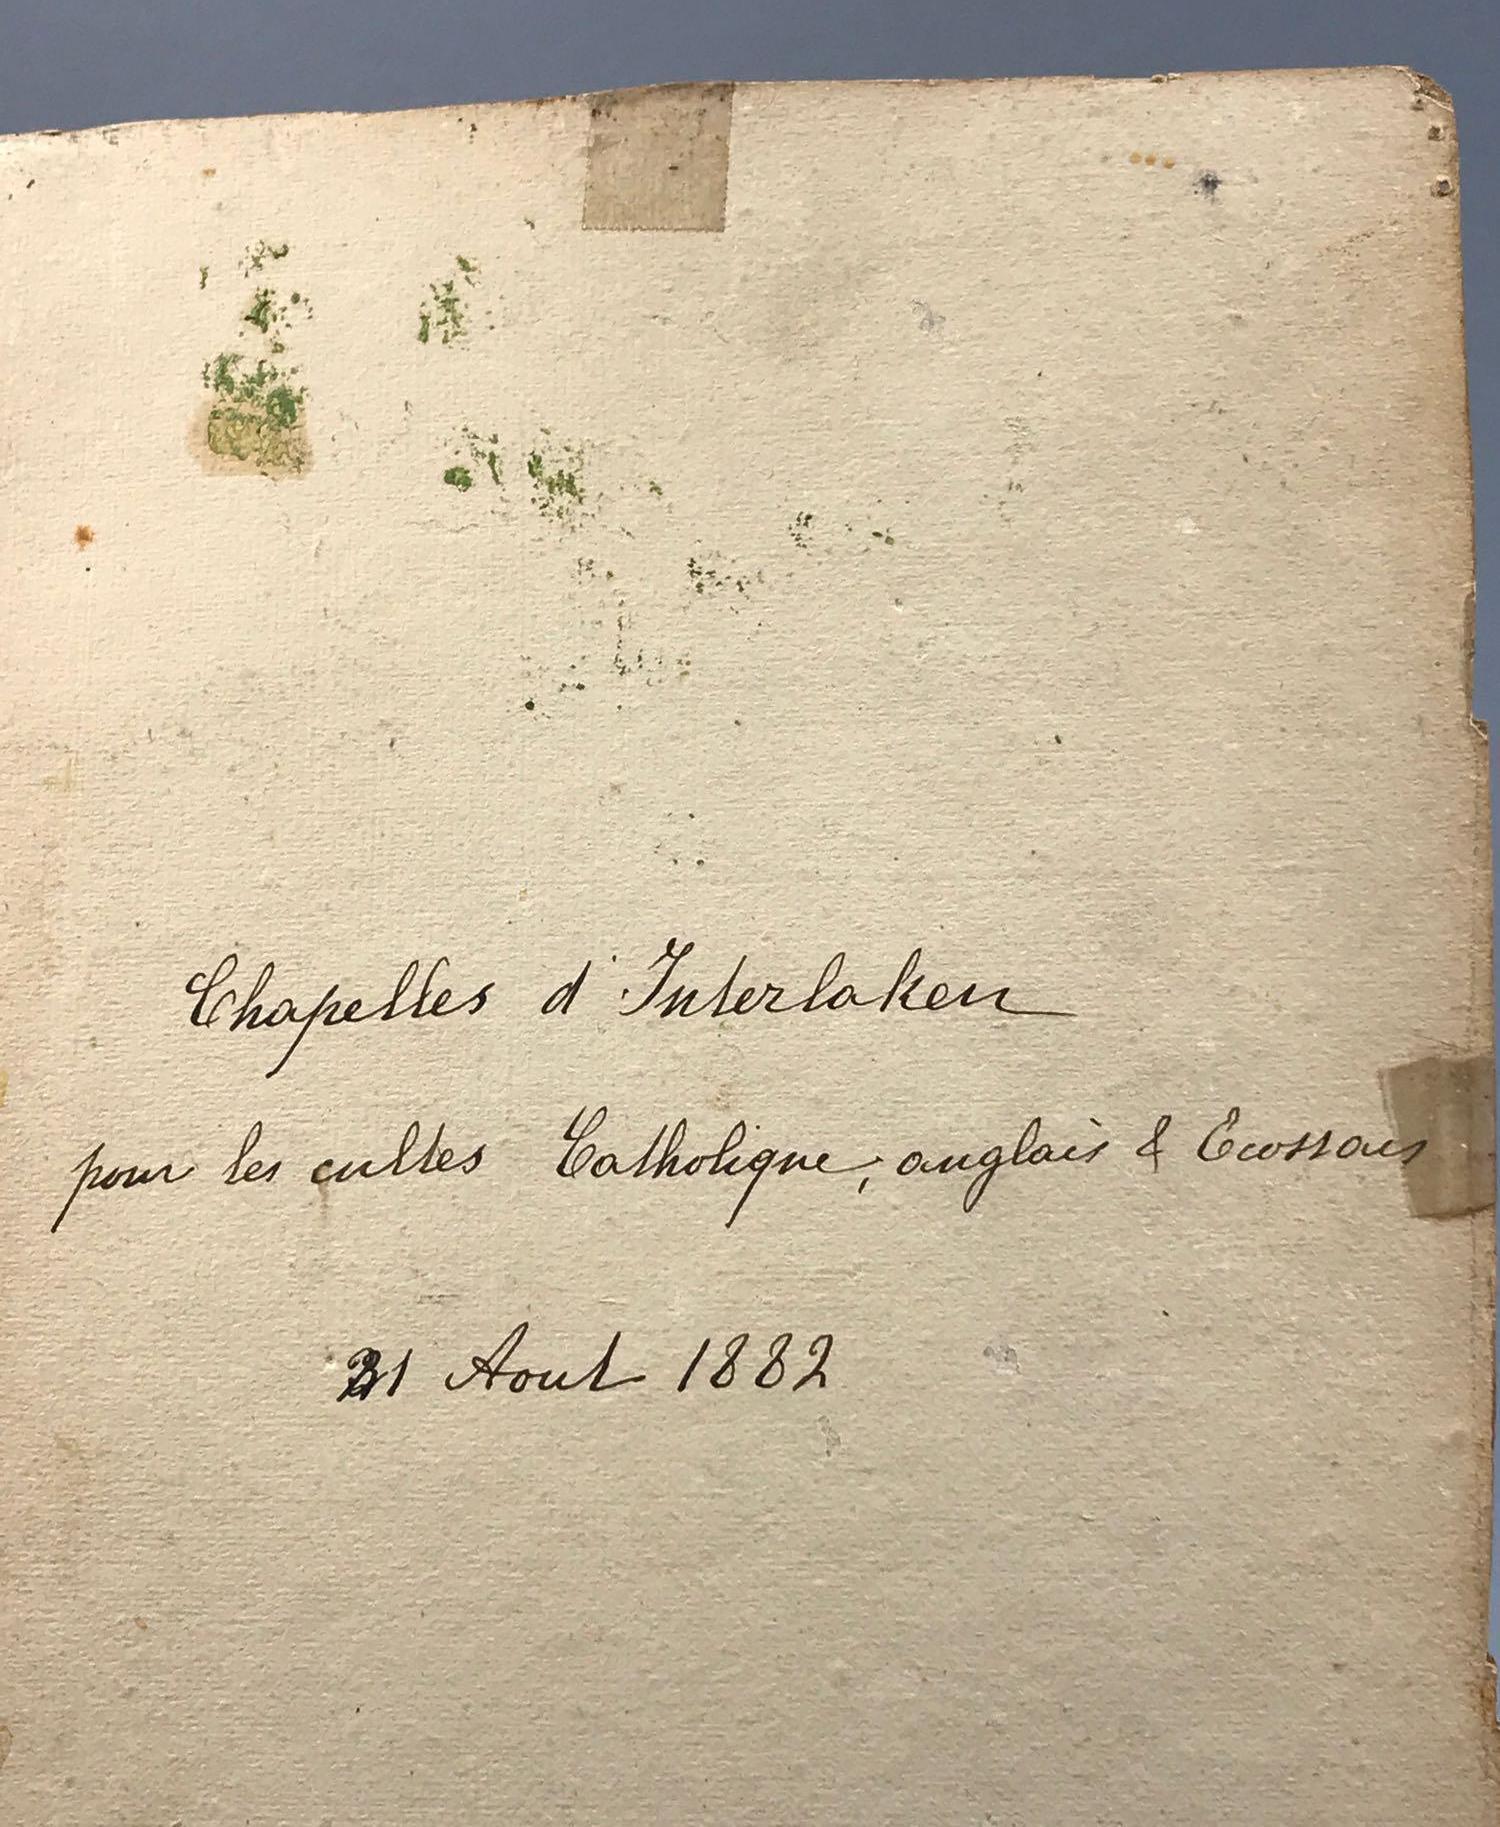 Chapelles d'Interlaken
pour les cultes Catholique, anglais & Ecossais
31 Aout 1882